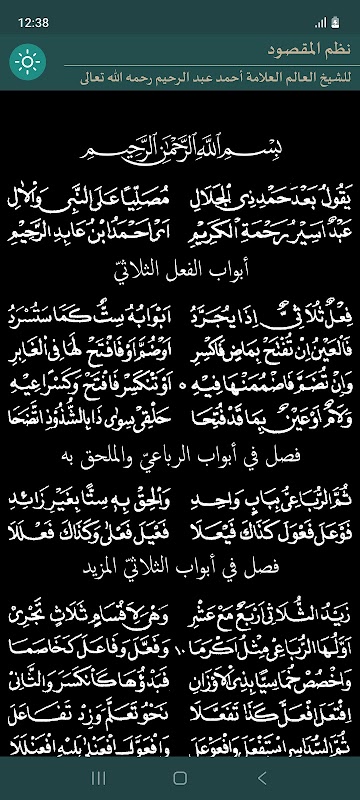 12:38
نظم المقصود
للشيخ العالم العلامة أحمد عبد الرحيم رحمه الله تعالى
بِسْمِ اللَّهِ الرَّحْمَٰنِ الرَّحِيمِ
يَقُولُ بَعْدَ حَمْدِ ذِي الْجَلَالِ مُصَلِّيًا عَلَى النَّبِي وَالْآلِ
عَبْدٌ أَسِيرُ رَحْمَةِ الْكَرِيمِ أَيْ أَحْمَدُ ابْنُ عَابِدِ الرَّحِيمِ
أبواب الفعل الثلاثيّ
فِعْلٌ ثُلَاثِيٌّ إِذَا يُجَرَّدُ أَبْوَابُهُ سِتٌّ كَمَا سَتُسْرَدُ
فَالْعَيْنُ إِنْ تُفْتَحْ بِمَاضٍ فَاكْسِرِ أَوْ ضُمَّ أَوْ فَافْتَحْ لَهَا فِي الْغَابِرِ
وَإِنْ تُضَمَّ فَاضْمُمَنْهَا فِيهِ ٥ أَوْ تَنْكَسِرْ فَافْتَحْ وَكَسْرًا عِيهِ
وَلَامٌ أَوْ عَيْنٌ بِمَا قَدْ فُتِحَا حَلْقِي سِوَى ذَا بِالشُّذُوذِ اتَّضَحَا
فصل في أبواب الرباعيّ والملحق به
ثُمَّ الرُّبَاعِيُّ بِبَابٍ وَاحِدِ وَالْحِقْ بِهِ سِتًّا بِغَيْرِ زَائِدِ
فَوْعَلَ فَعْوَلَ كَذَاكَ فَيْعَلَا فَعْيَلَ فَعْلَى وَكَذَاكَ فَعْلَلَا
فصل في أبواب الثلاثيّ المزيد
زَيْدُ الثُّلَاثِي أَرْبَعٌ مَعْ عَشْرِ وَهْيَ لِأَقْسَامٍ ثَلَاثٍ تَجْرِي
أَوَّلُهَا الرُّبَاعِ مِثْلُ أَكْرَمَا ١٠ وَفَعَّلَ وَفَاعَلَ كَخَاصَمَا
وَاخْصُصْ خُمَاسِيًّا بِذِي الْأَوْزَانِ فَبَدْؤُهَا كَانْكَسَرَ وَالثَّانِي
افْتَعَلَ افْعَلَّ كَذَا تَفَعَّلَا نَحْوُ تَعَلَّمَ وَزِدْ تَفَاعَلَا
ثُمَّ السُّدَاسِي اسْتَفْعَلَ وَافْعَوْعَلَ وَافْعَوَّلَ افْعَنْلَى يَلِيهِ افْعَنْلَلَا